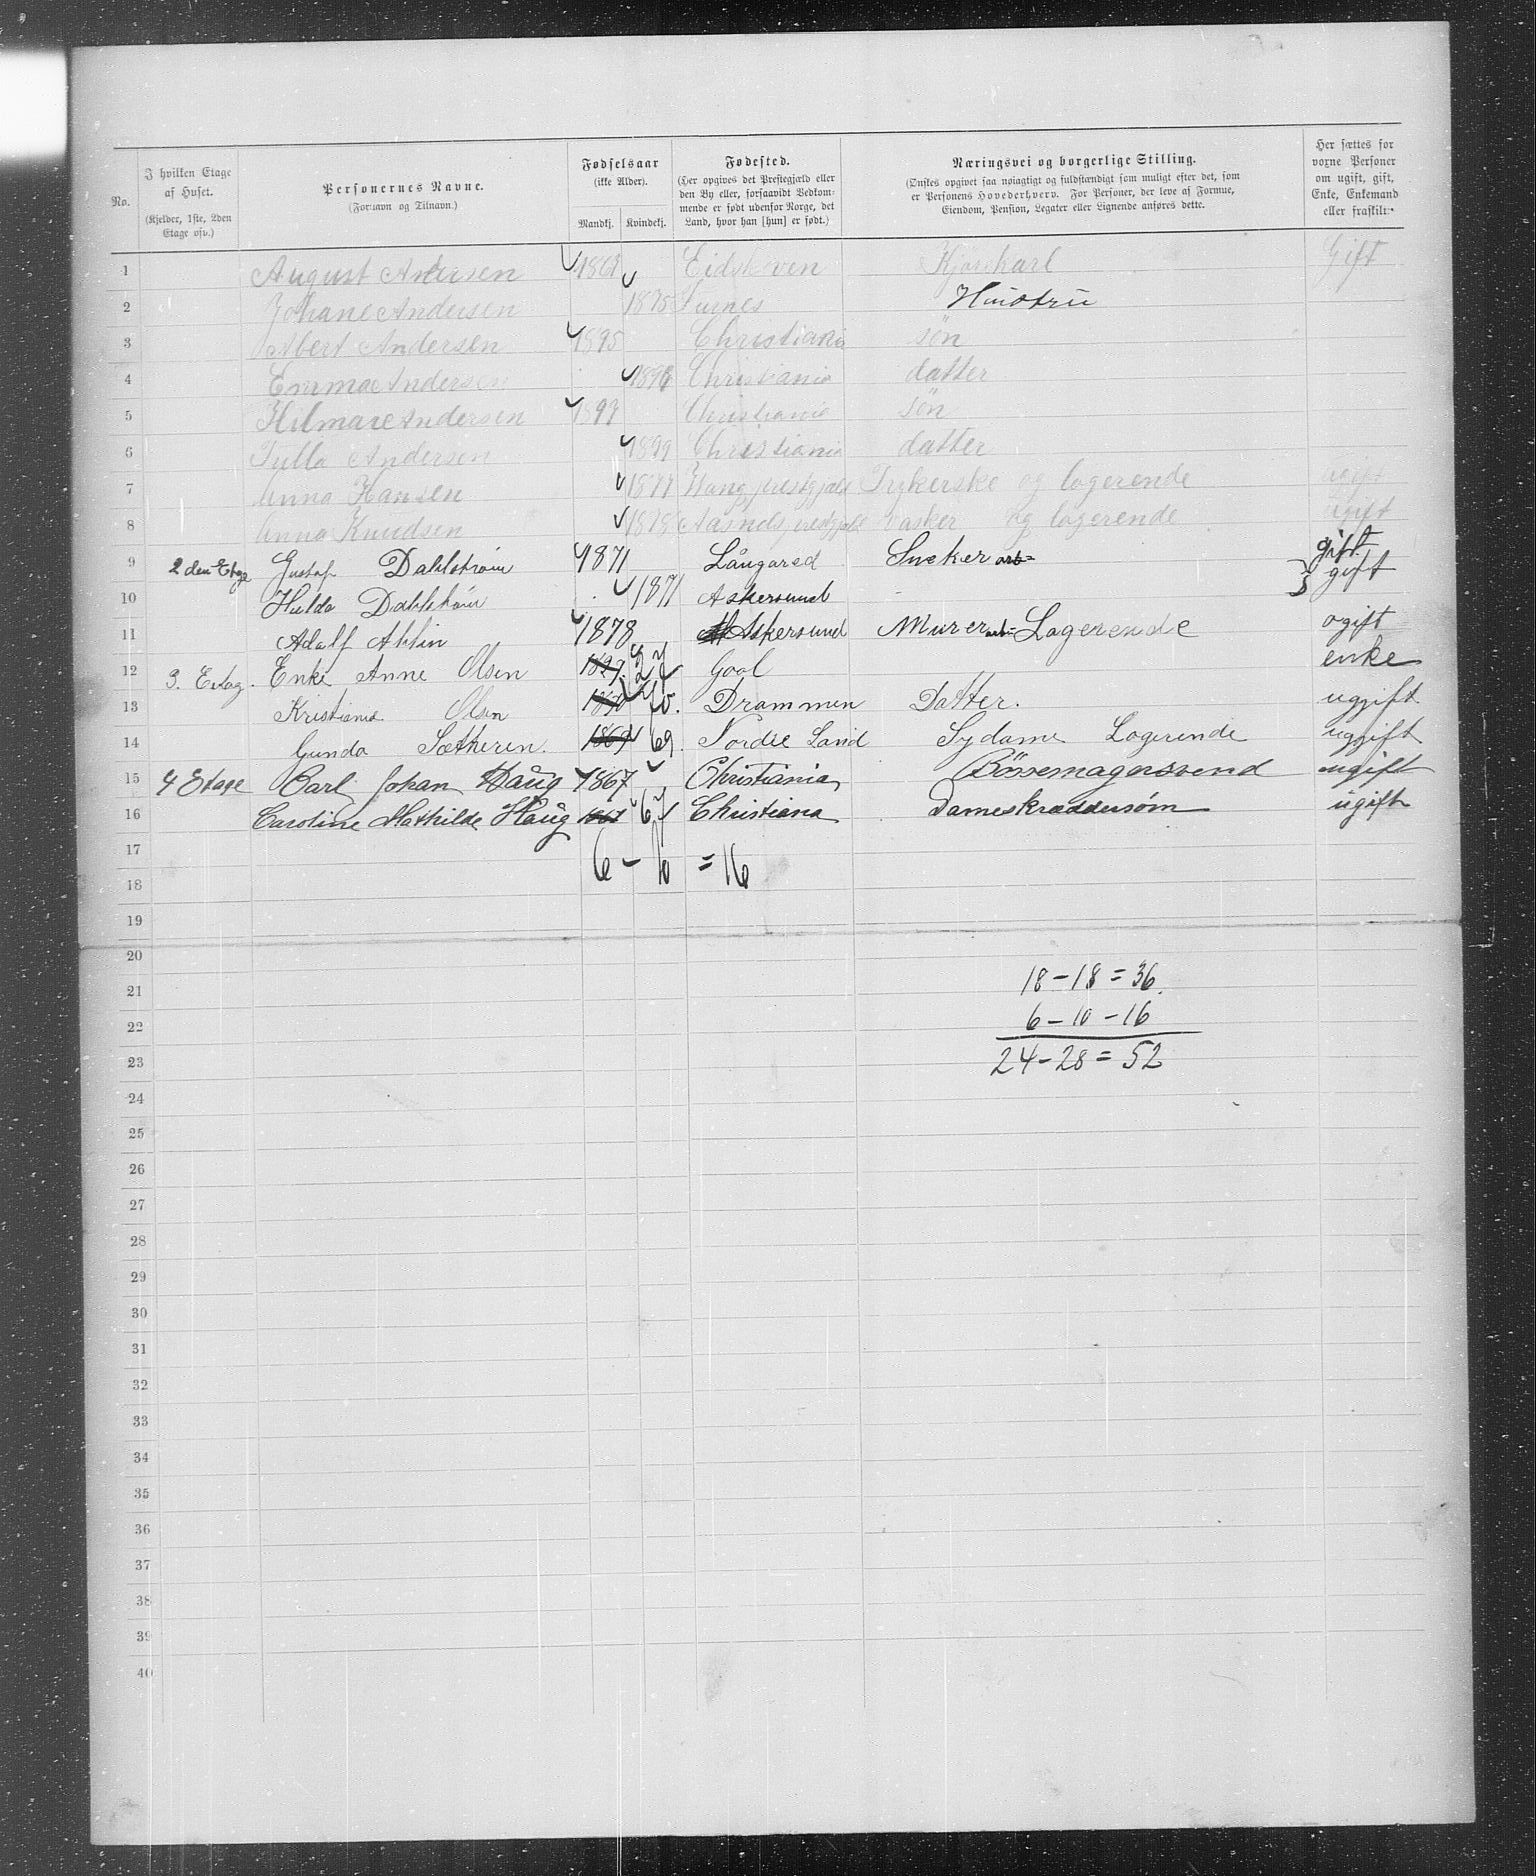 No.
I hvilken Etage af Huset.
(Kjelder, 1ste, 2den Etage osv.)
Personernes Navne.
(Fornavn og Tilnavn.)
Fødselsaar
(ikke Alder).
Mandkj. Kvindekj.
Fødested.
(Her opgives det Prestegjæld eller
den By eller, forsaavidt Vedkom-
mende er født udenfor Norge, det
Land, hvor han [hun] er født.)
Næringsvei og borgerlige Stilling.
(Ønskes opgivet saa nøiagtigt og fuldstændigt som muligt efter det, som
er Personens Hovederhverv. For Personer, der leve af Formue,
Eiendom, Pension, Legater eller Lignende anføres dette.
Her sættes for
voxne Personer
om ugift, gift,
Enke, Enkemand
eller fraskilt.
1 August Andersen Kjørekarl Gift
2 Johane Andersen 1875 Hustru
3 Albert Andersen 1895 Christiania søn
4 Emma Andersen Christiania datter
5 Hilmar Andersen 1897 Christiania søn
6 Andersen 1899 Christiania datter
7 Anna Hansen 1877 Vang prestgjæld Trykerske og logerende ugift
8 Anna Knudsen Aasnes prestgjæld vasker og logerende ugift
9 2den Etage Gustaf Dahlstrøm 1871 Långared Sneker arb= gift
10 Hulda Dahlstrøm 1871 Askersund gift
11 Adolf Ahlin 1878 Askersund Murer arb= Logerende ogift
12 3. Etag. Enke Anne Olsen 27 Gool enke
13 Kristiania Olsen 1870 70. Drammen Datter. ugjift
14 Gunda Sætheren. 1869 69. Nordre Land Sydame Logerende ugjift
15 4 Etage Carl Johan Haug 1867 Christiania Bössemagersvend ugift
16 Caroline Mathilde Haug 1867 67 Christiana Dameskræddersøm ugift
17
6 - 10 = 16
18
19
20
18 - 18 = 36.
21
6 - 10 - 16
22
24 - 28 = 52
23
24
25
26
27
28
29
30
31
32
33
34
35
36
37
38
39
40